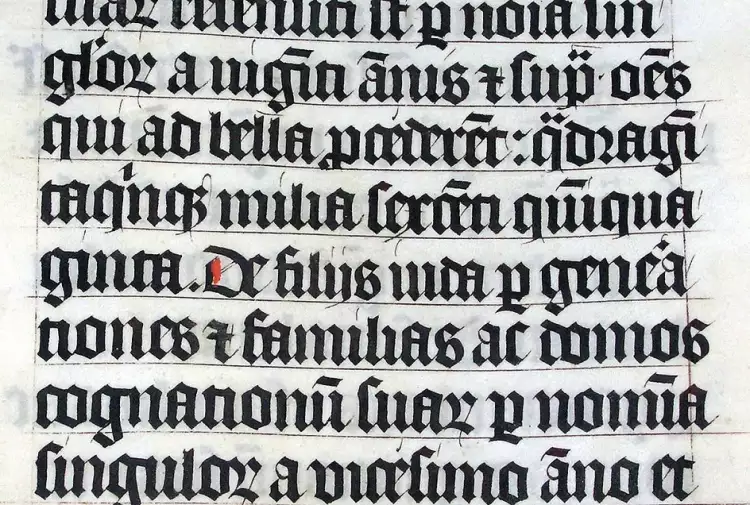 suaꝝ recensiti sūt ꝑ noīa sin
gl'oꝝ a uigīti ānis ⁊ sup̄ oēs
qui ad bella ꝓcederēt: q̈dragī
taqͥnqꝫ milia sexcēti quīqua
ginta. De filijs iuda ꝑ genera
tiones ⁊ familias ac domos
cognationū suaꝝ ꝑ nomīa
singuloꝝ a vicesimo āno et